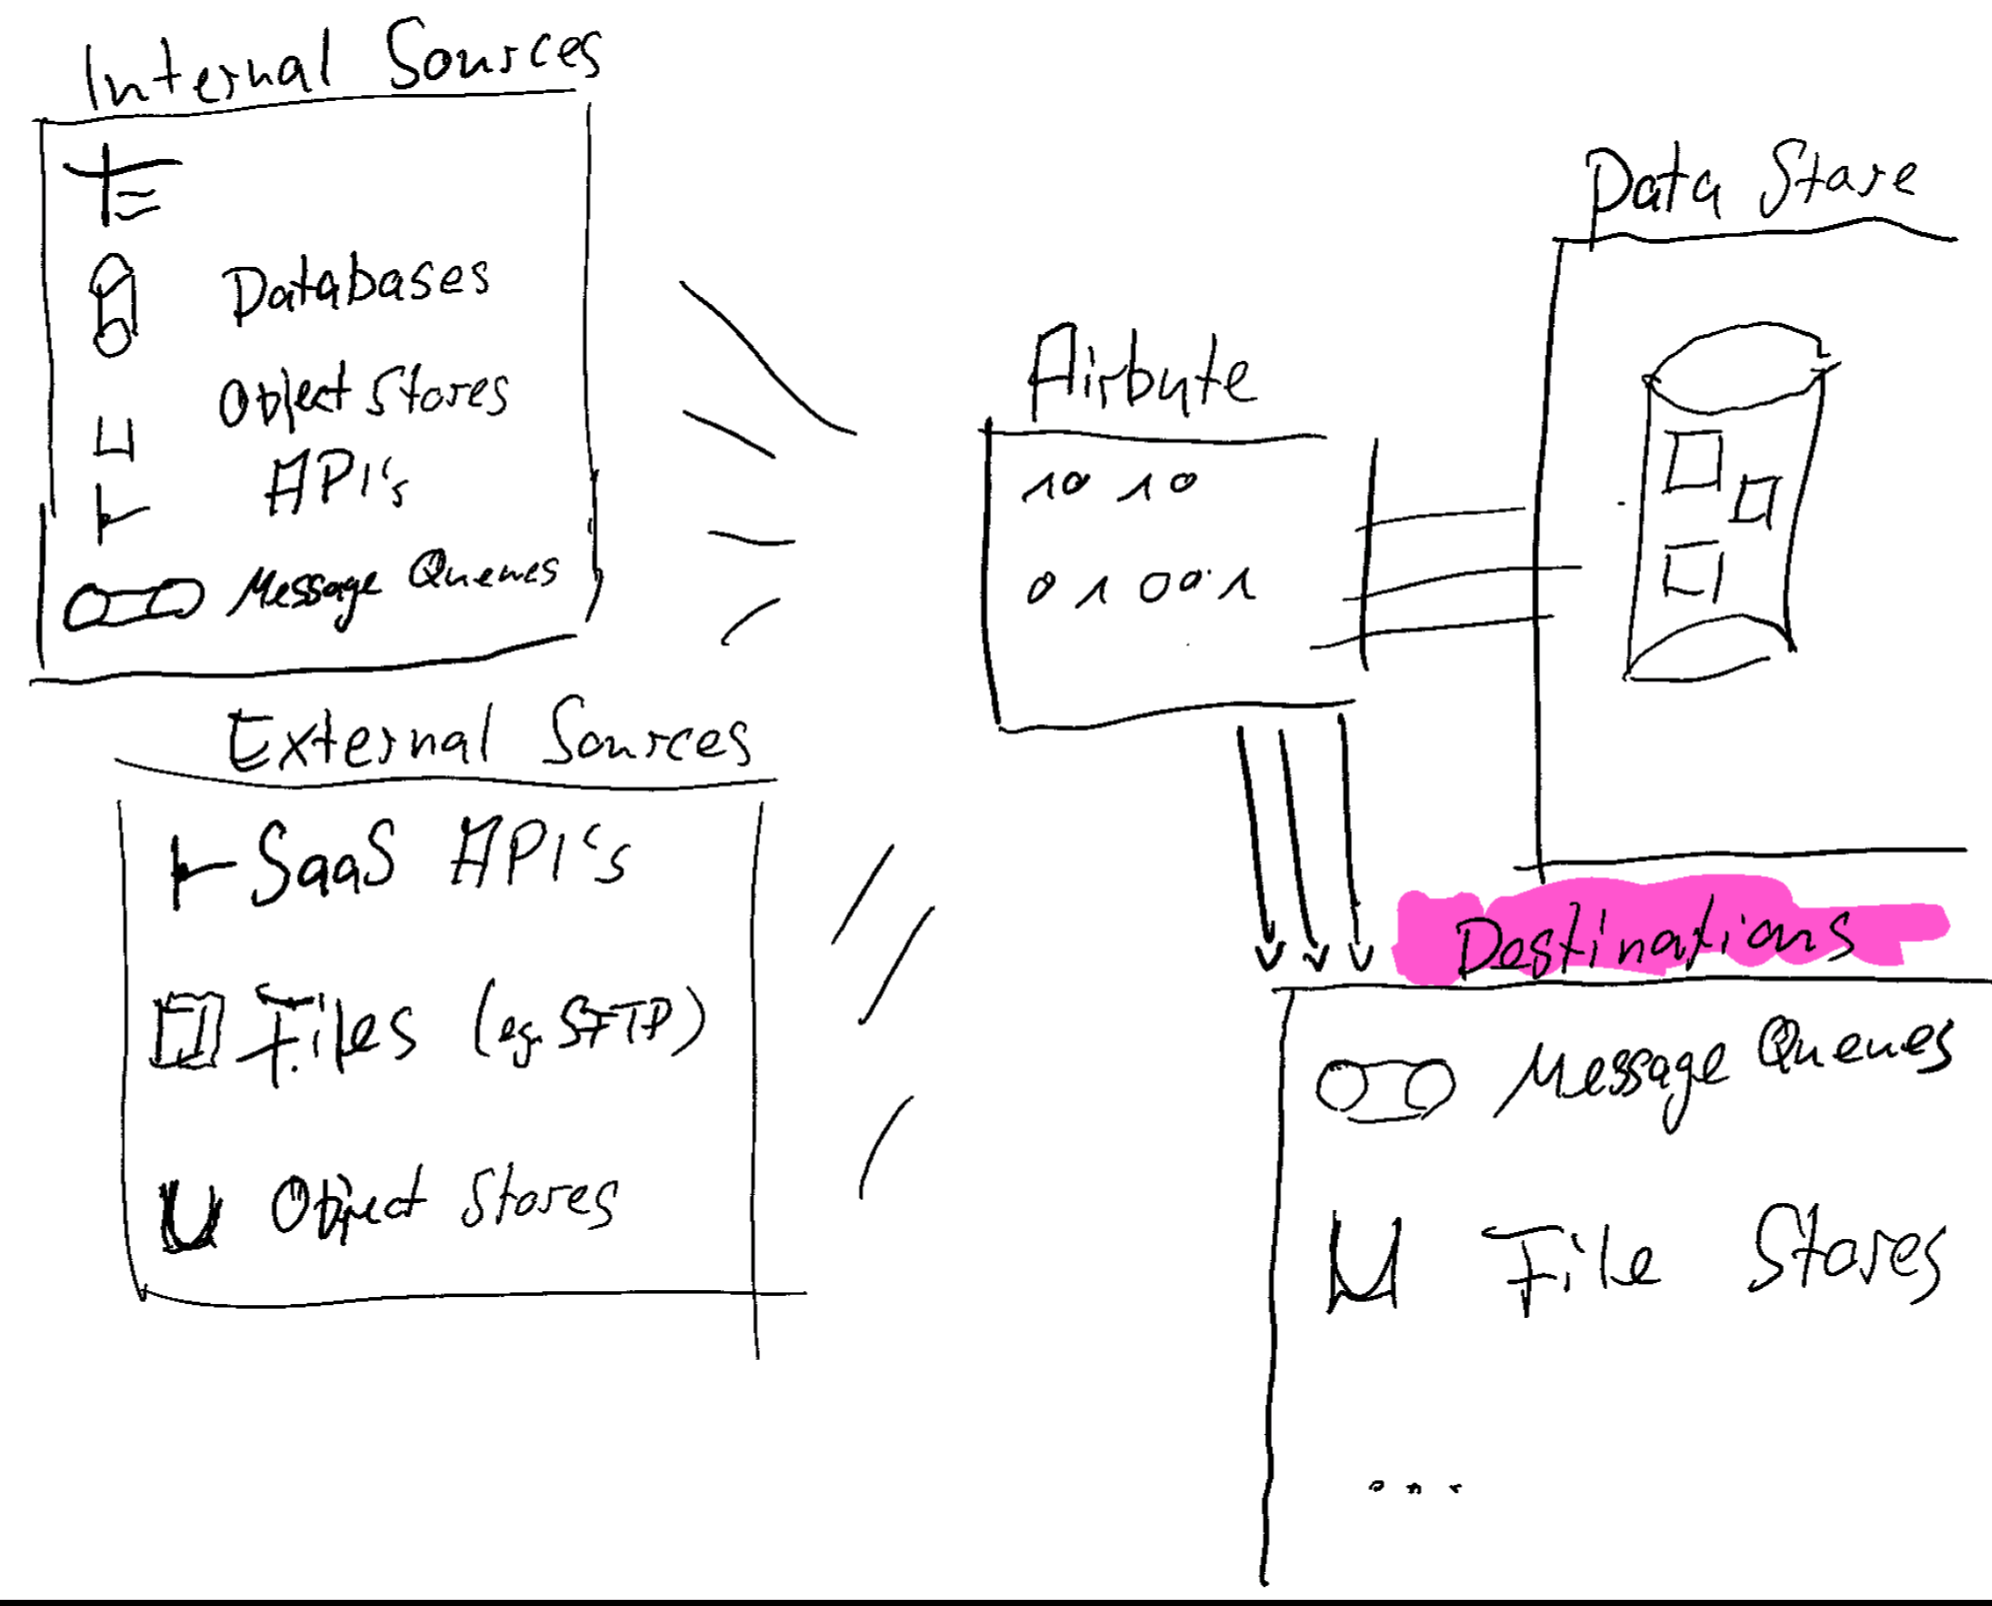 Internal Sources
Databases
Object Stores
API's
Message Queues
External Sources
SaaS API's
Files (eg. SFTP)
Object Stores
Airbyte
10 10
01 001
Data Store
Destinations
Message Queues
File Stores
...